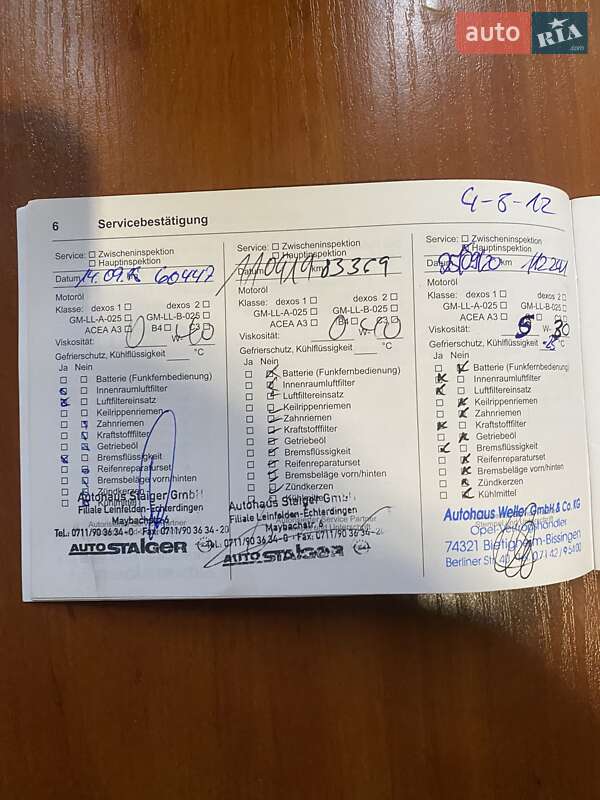 auto RIA .com
4-8-12
6 Servicebestätigung
Service: Zwischeninspektion
Hauptinspektion
Datum 14.09.16 60442
Motoröl
Klasse: dexos 1 dexos 2
GM-LL-A-025 GM-LL-B-025
ACEA A3 B4 C3
Viskosität: 0 W- 40
Gefrierschutz, Kühlflüssigkeit °C
Ja Nein
Batterie (Funkfernbedienung)
Innenraumluftfilter
Luftfiltereinsatz
Keilrippenriemen
Zahnriemen
Kraftstofffilter
Getriebeöl
Bremsflüssigkeit
Reifenreparaturset
Bremsbeläge vorn/hinten
Zündkerzen
Kühlmittel
Autohaus Staiger GmbH
Filiale Leinfelden-Echterdingen
Maybachstr. 6
Tel.: 0711/90 36 34-0 Fax: 0711/90 36 34-20
AUTO STAIGER
Service: Zwischeninspektion
Hauptinspektion
Datum 110419 km 83369
Motoröl
Klasse: dexos 1 dexos 2
GM-LL-A-025 GM-LL-B-025
ACEA A3 B4 C3
Viskosität: 0 W- 40
Gefrierschutz, Kühlflüssigkeit °C
Ja Nein
Batterie (Funkfernbedienung)
Innenraumluftfilter
Luftfiltereinsatz
Keilrippenriemen
Zahnriemen
Kraftstofffilter
Getriebeöl
Bremsflüssigkeit
Reifenreparaturset
Bremsbeläge vorn/hinten
Zündkerzen
Kühlmittel
Autohaus Staiger GmbH
Filiale Leinfelden-Echterdingen
Maybachstr. 6
Tel.: 0711/90 36 34-0 Fax: 0711/90 36 34-20
AUTO STAIGER
Service: Zwischeninspektion
Hauptinspektion
Datum 25/09/20 km 112241
Motoröl
Klasse: dexos 1 dexos 2
GM-LL-A-025 GM-LL-B-025
ACEA A3 B4 C3
Viskosität: 5 W- 30
Gefrierschutz, Kühlflüssigkeit -25 °C
Ja Nein
Batterie (Funkfernbedienung)
Innenraumluftfilter
Luftfiltereinsatz
Keilrippenriemen
Zahnriemen
Kraftstofffilter
Getriebeöl
Bremsflüssigkeit
Reifenreparaturset
Bremsbeläge vorn/hinten
Zündkerzen
Kühlmittel
Autohaus Weller GmbH & Co. KG
74321 Bietigheim-Bissingen
Berliner Str. 40